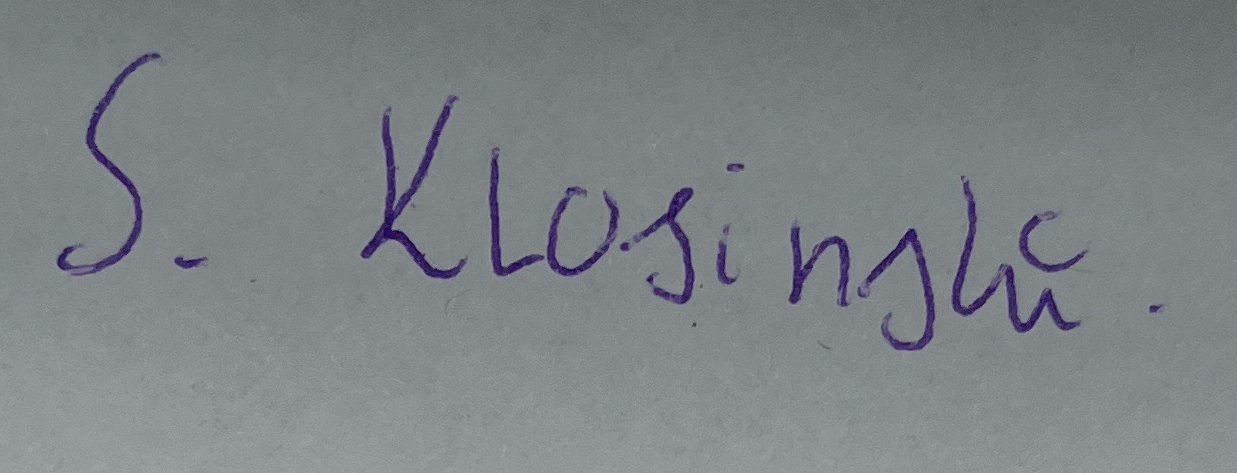 S. Klosinski.